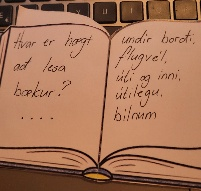 Hvar er hægt
að lesa
bækur?
....
undir borði,
flugvél,
úti og inni,
útilegu,
bílnum